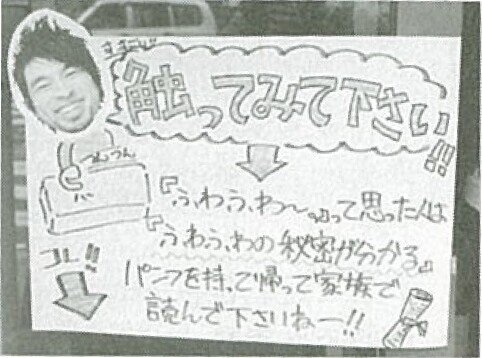 触ってみて下さい!!
『ふわふわ〜。』って思った人は
『ふわふわの秘密が分かる』
パンフを持って帰って家族で
読んで下さいねー!!
コレ!!